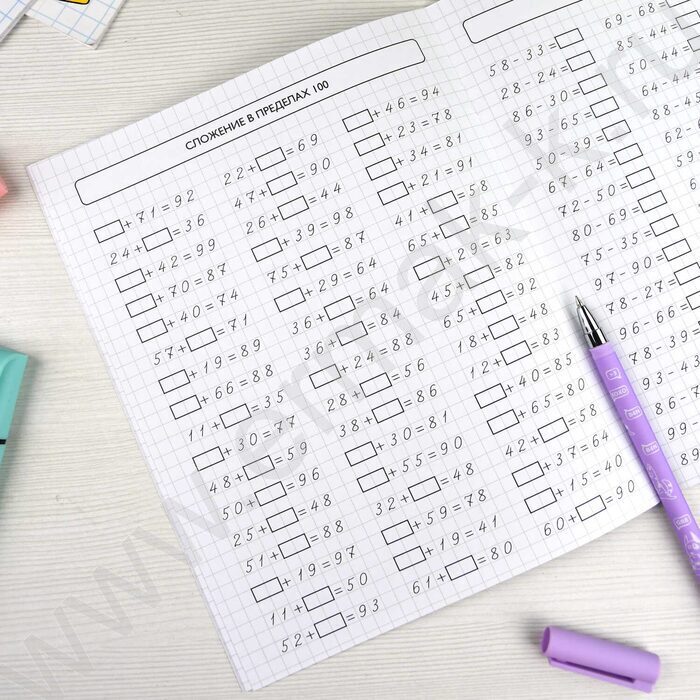 СЛОЖЕНИЕ В ПРЕДЕЛАХ 100
□+71=92
24+□=36
□+42=99
□+70=87
□+40=74
57+□=71
□+19=89
□+66=88
11+□=35
□+30=77
48+□=59
50+□=96
25+□=48
51+□=88
□+19=97
11+□=50
52+□=93
22+□=69
47+□=90
26+□=44
□+39=98
75+□=87
□+29=64
36+□=64
36+□=84
□+24=88
28+□=56
38+□=86
□+30=81
□+55=90
32+□=48
□+59=78
□+19=41
61+□=80
□+46=94
□+23=78
□+34=81
□+21=91
41+□=58
65+□=85
□+29=63
45+□=82
65+□=92
18+□=48
12+□=83
□+40=85
□+65=80
42+□=58
□+37=64
□+15=40
60+□=90
58-33=□
28-24=□
86-30=□
93-65=□
50-39=□
67-60=□
72-50=□
80-69=□
75-35=□
97-90=□
78-27=□
96-66
78-39
93-43
69-68=
85-44=
50-44=
www.ermak-k.ru